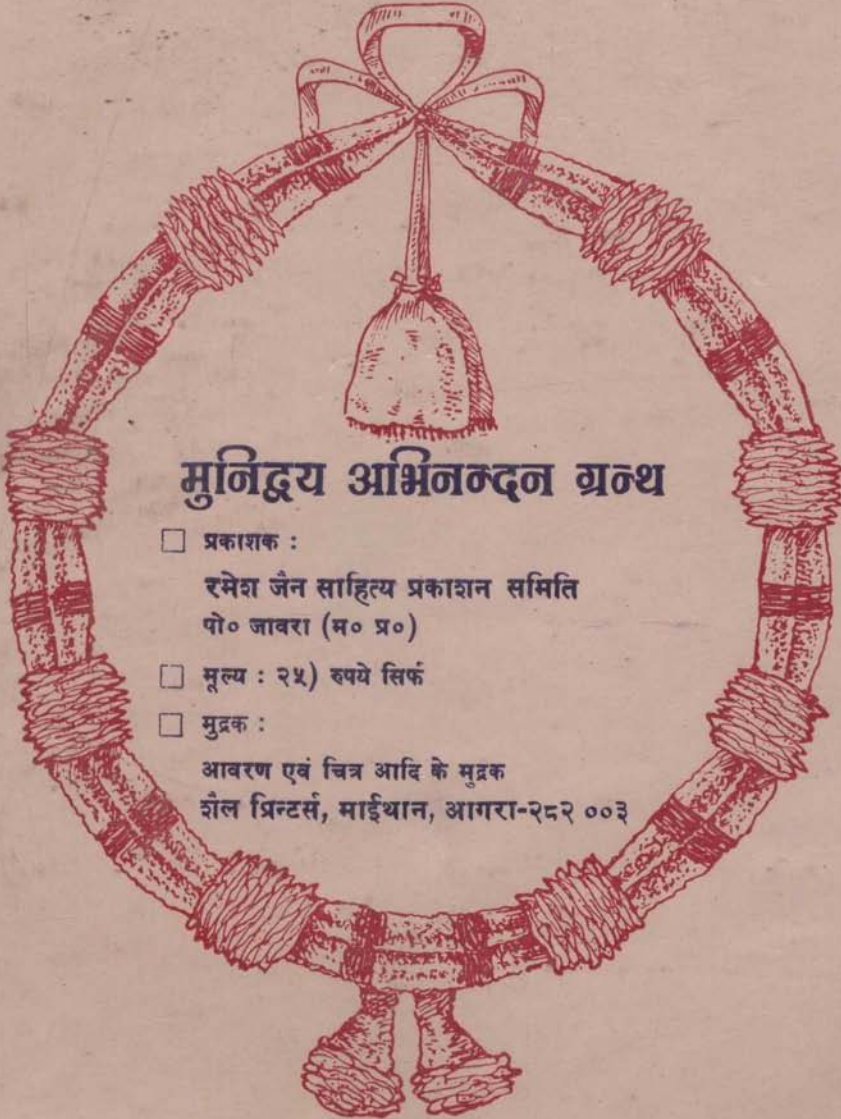 मुनिद्वय अभिनन्दन ग्रन्थ
□ प्रकाशक :
रमेश जैन साहित्य प्रकाशन समिति
पो० जावरा (म० प्र०)
□ मूल्य : २५) रुपये सिर्फ
□ मुद्रक :
आवरण एवं चित्र आदि के मुद्रक
शैल प्रिन्टर्स, माईथान, आगरा-२८२ ००३